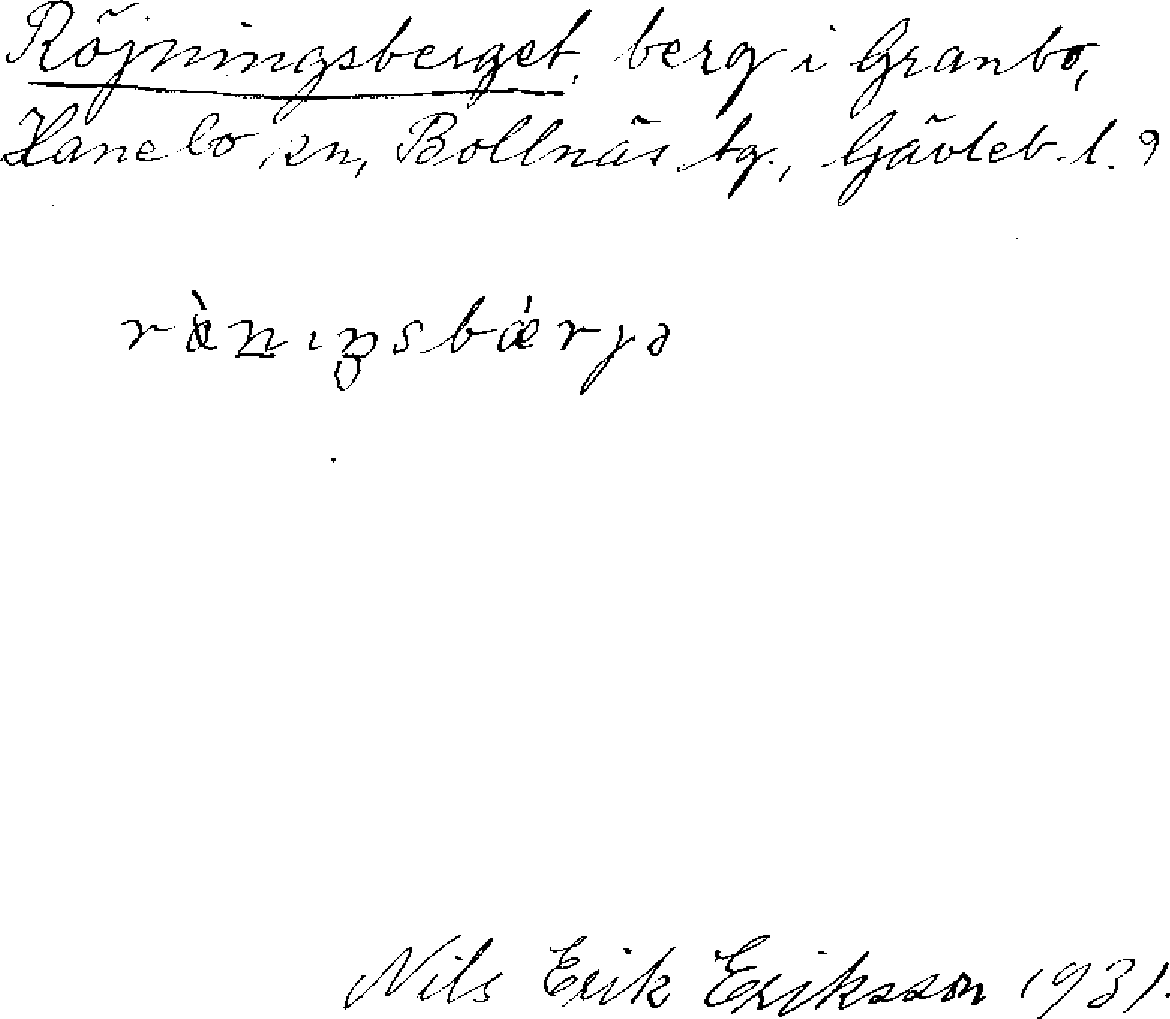 Röjningsberget, berg i Granbo,
Hanebo sn, Bollnäs tg., Gävleb. l.
ræ̀nıŋsbǽrjə
Nils Erik Eriksson 1931.